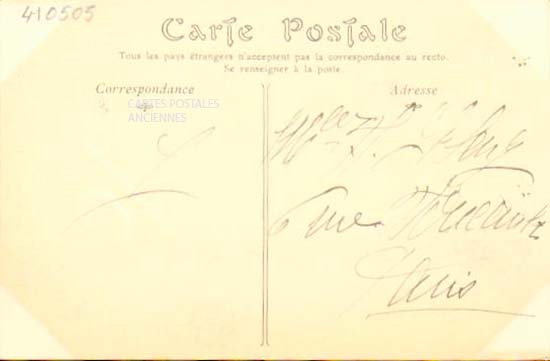 410505
Carte Postale
Tous les pays étrangers n'acceptent pas la correspondance au recto.
Se renseigner à la poste.
Correspondance
Adresse
CARTES POSTALES
ANCIENNES
Mlle
rue
Paris